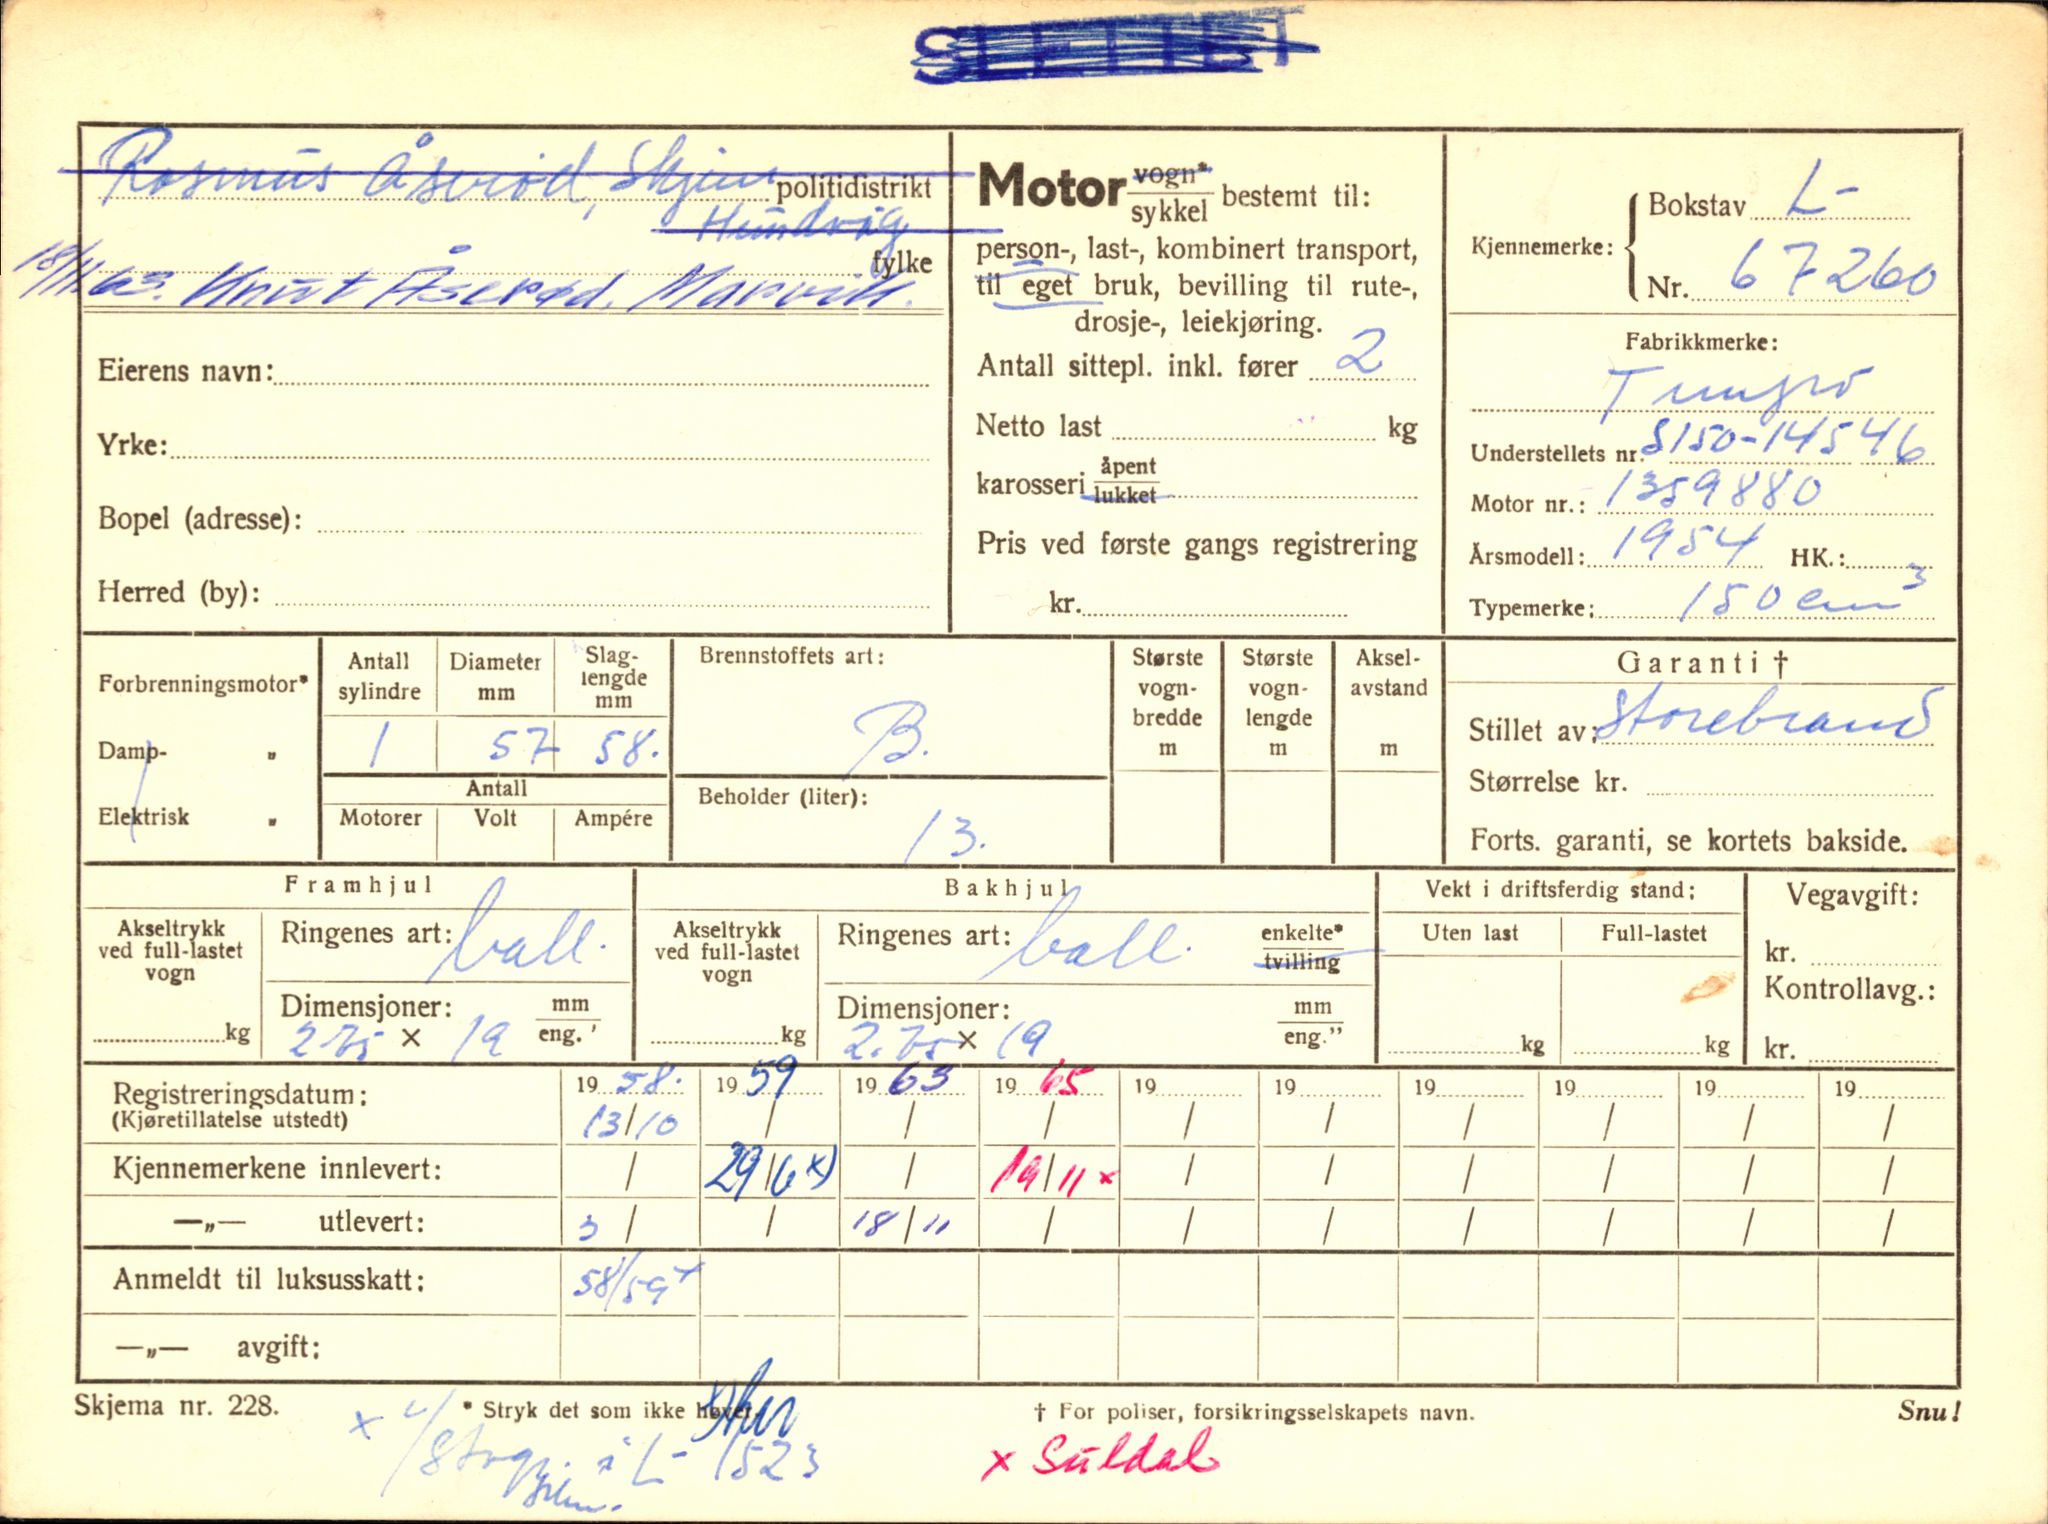 SLETTET
Rasmus Åserød, Skjenn politidistrikt
Hundvåg
fylke
18/11.63. Knut Åserød. Marvik.
Eierens navn:
Yrke:
Bopel (adresse):
Herred (by):
Motor vogn* / sykkel bestemt til:
person-, last-, kombinert transport,
til eget bruk, bevilling til rute-,
drosje-, leiekjøring.
Antall sittepl. inkl. fører 2
Netto last kg
karosseri åpent / lukket
Pris ved første gangs registrering
kr.
Kjennemerke: Bokstav L-
Nr. 67260
Fabrikkmerke:
Understellets nr. S150-14546
Motor nr.: 1359880
Årsmodell: 1954 HK.:
Typemerke: 150 cm3
Forbrenningsmotor*
Damp- „
Elektrisk „
Antall sylindre
Diameter mm
Slag-lengde mm
1 57 58.
Antall
Motorer Volt Ampére
Brennstoffets art:
B.
Beholder (liter):
13.
Største vogn-bredde m
Største vogn-lengde m
Aksel-avstand m
Garanti †
Stillet av: Storebrand
Størrelse kr.
Forts. garanti, se kortets bakside.
Framhjul
Akseltrykk ved full-lastet vogn
kg
Ringenes art: ball.
Dimensjoner: mm / eng.'
2.75 x 19
Bakhjul
Akseltrykk ved full-lastet vogn
kg
Ringenes art: ball. enkelte* / tvilling
Dimensjoner: mm / eng."
2.75 x 19
Vekt i driftsferdig stand:
Uten last Full-lastet
kg kg
Vegavgift:
kr.
Kontrollavg.:
kr.
Registreringsdatum: 1958. 1959 1963 1965 19 19 19 19 19 19
(Kjøretillatelse utstedt) 13/10 / / / / / / / / /
Kjennemerkene innlevert: / 29/6 x) / 19/11 x / / / / / /
—„— utlevert: 3/ / 18/11 / / / / / / /
Anmeldt til luksusskatt: 58/59
—„— avgift:
Skjema nr. 228. * Stryk det som ikke høver. † For poliser, forsikringsselskapets navn. Snu!
x i L- 1523
x Suldal